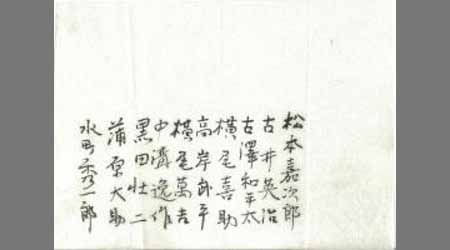 松本嘉次郎
古井英治
古澤和平太
横尾喜助
高岸卯平
横尾萬吉
中溝逸作
黒田壮二
蒲原大助
水町秀一郎